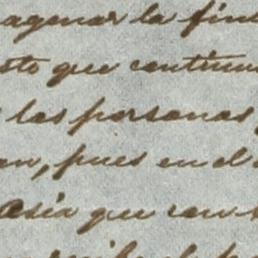 agenar la fin
sto que continu
las personas
an, pues en el
asia que con